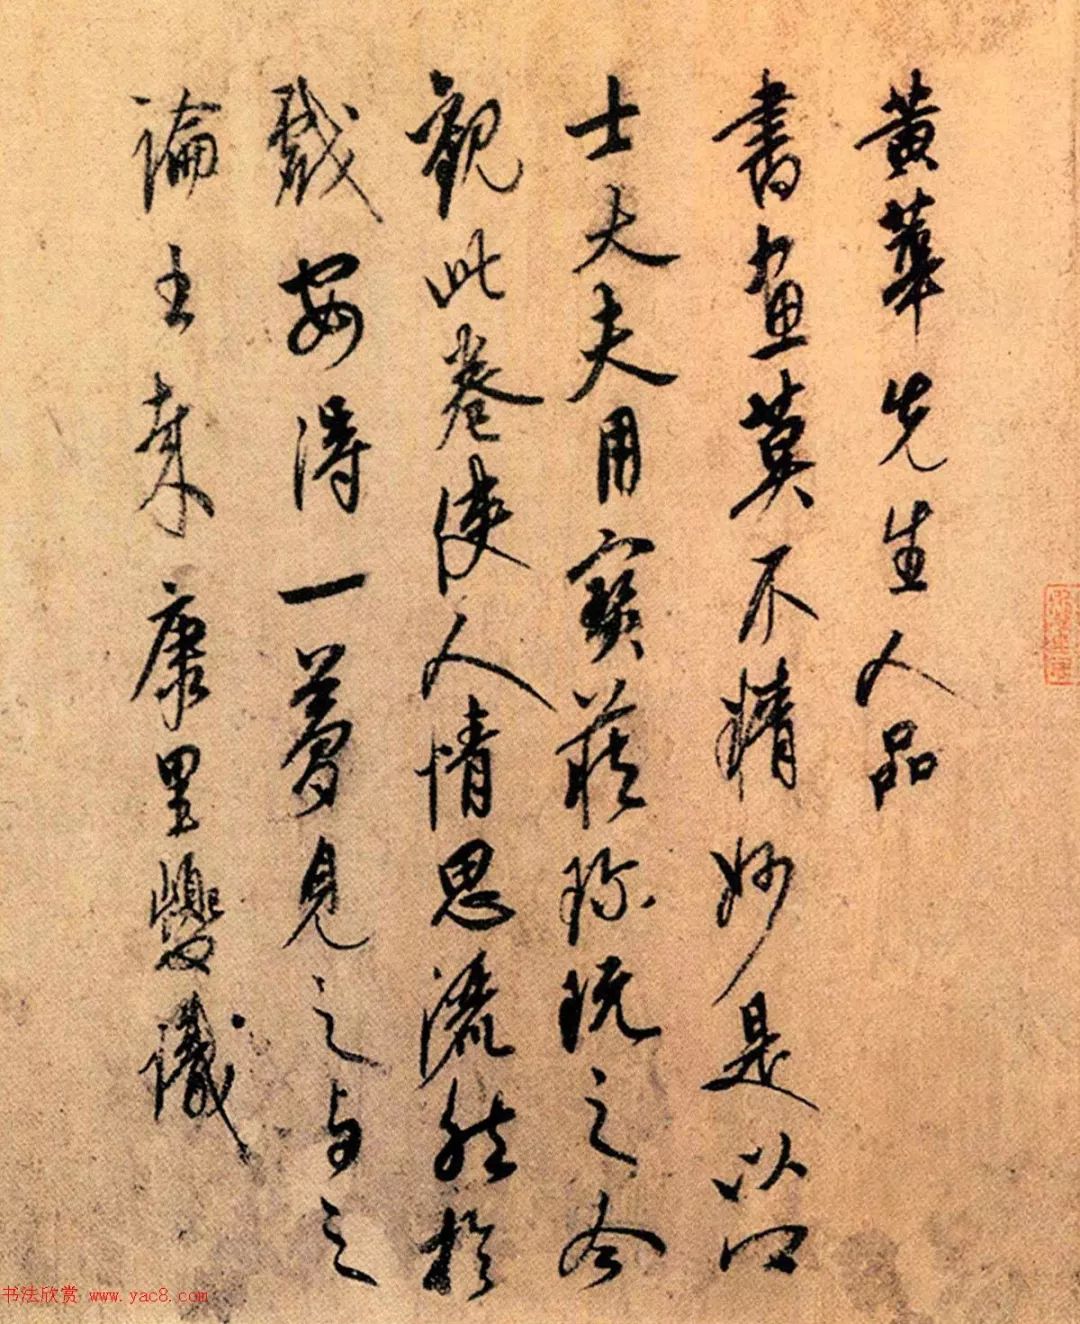 黃華先生人品
書畫莫不精妙是以
士大夫用寶藏珍玩之今
觀此卷使人情思灑然於
戲安得一夢見之与之
論康里巎識
书法欣赏 www.yac8.com